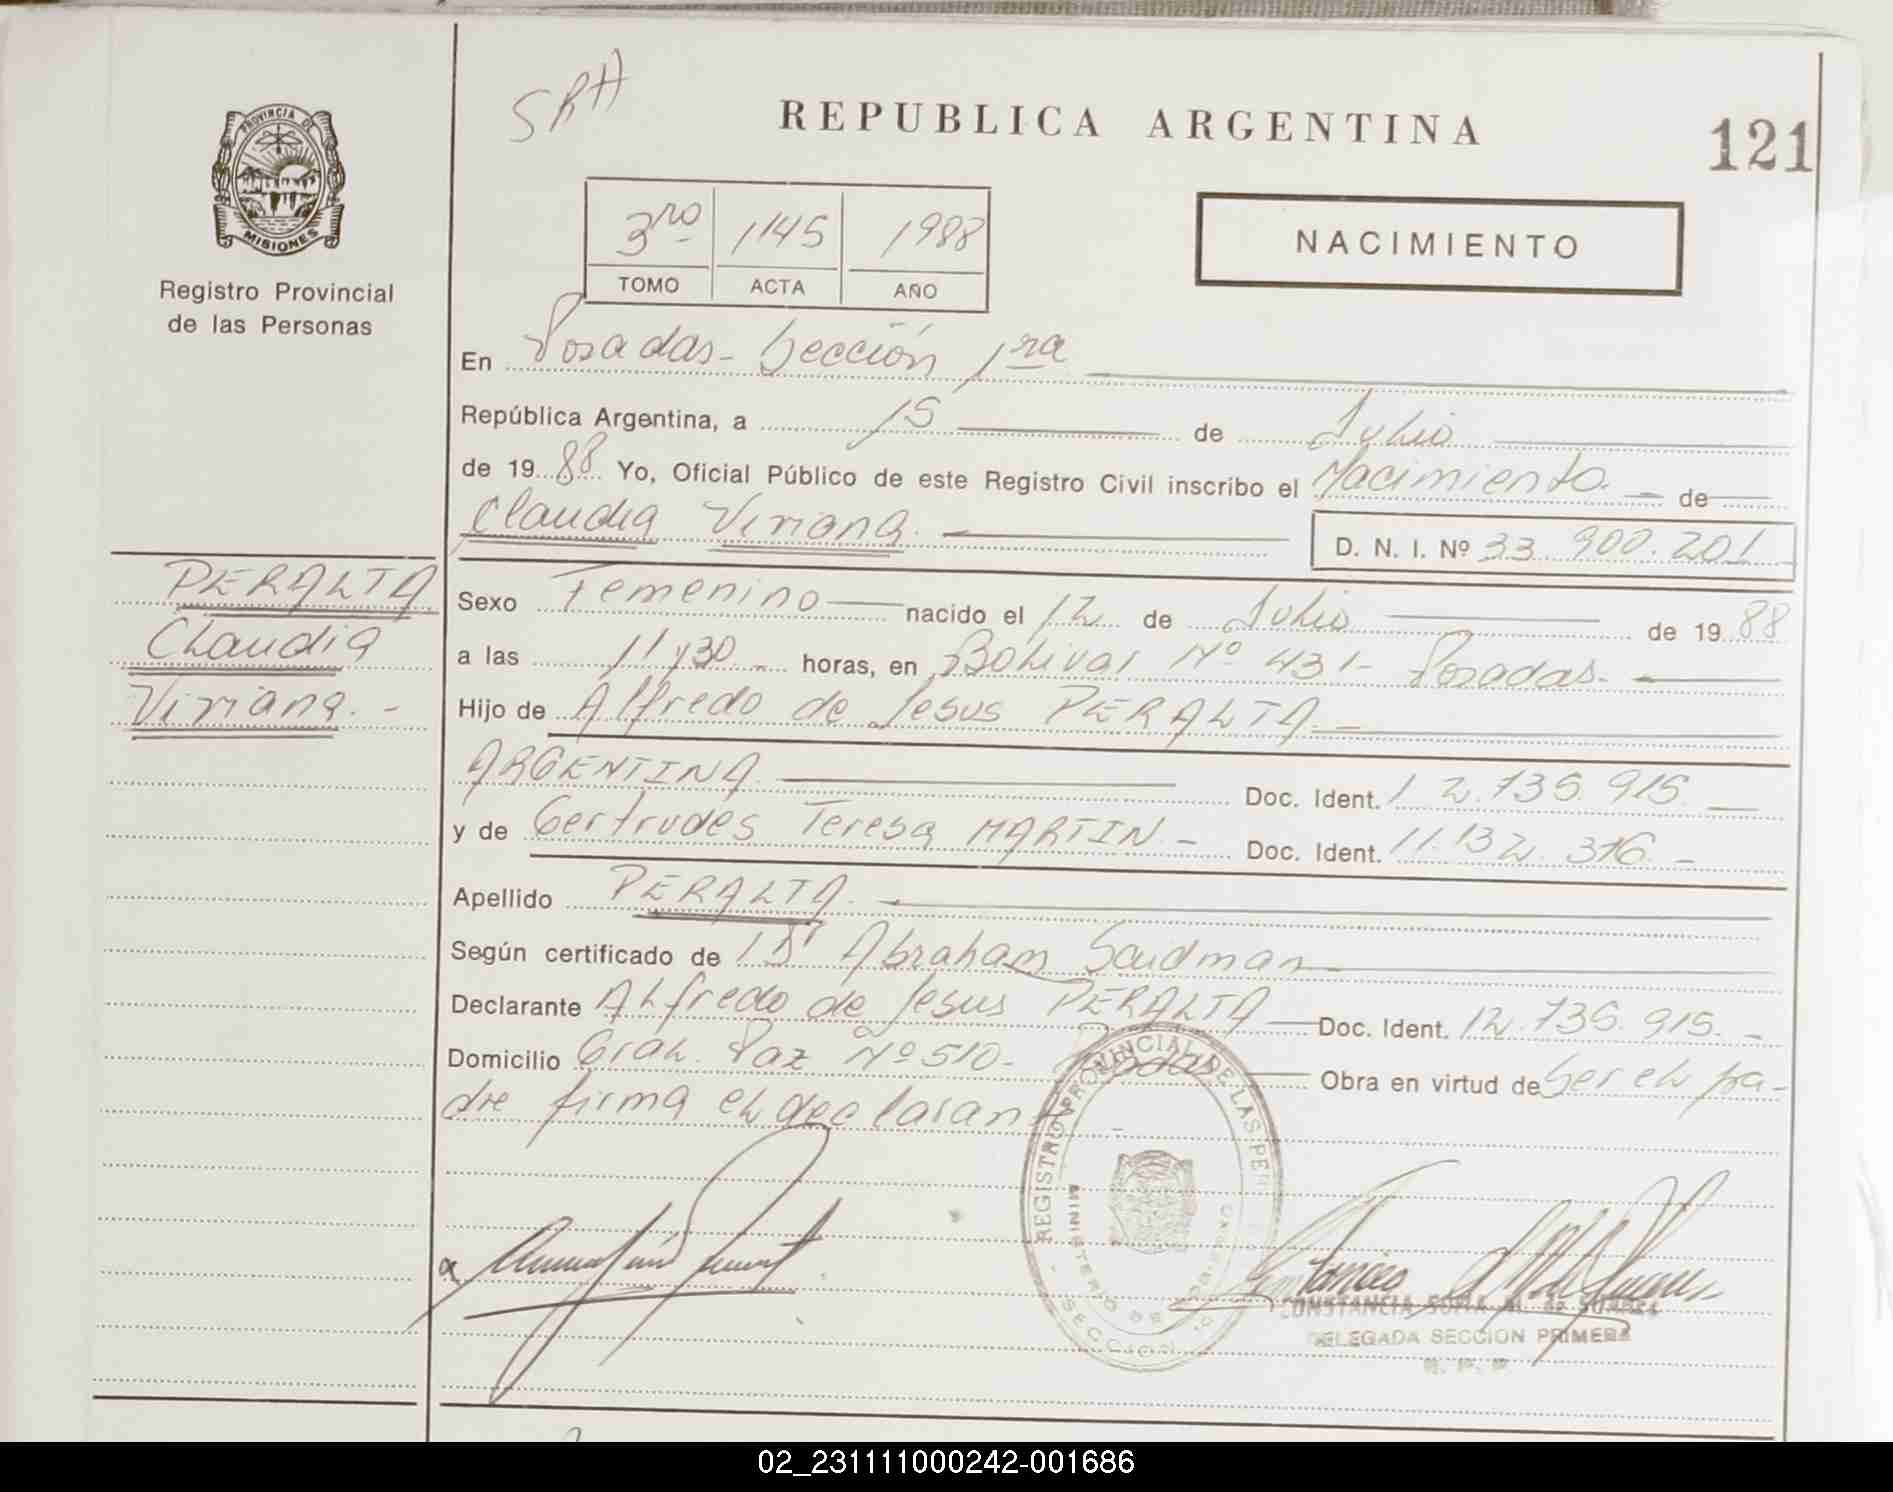 SRA
REPUBLICA ARGENTINA
121
PROVINCIA DE
MISIONES
Registro Provincial
de las Personas
3ro 1145 1988
TOMO ACTA AÑO
NACIMIENTO
En Posadas - Sección 1ra
República Argentina, a 15 de Julio
de 19 88 Yo, Oficial Público de este Registro Civil inscribo el Nacimiento de
Claudia Viviana.
D. N. I. Nº 33.900.201
PERALTA
Claudia
Viviana. -
Sexo Femenino nacido el 12 de Julio de 19 88
a las 11 y 30 horas, en Bolivar Nº 431 - Posadas. -
Hijo de Alfredo de Jesus PERALTA. -
ARGENTINA Doc. Ident. 12.735.915. -
y de Gertrudes Teresa MARTIN. - Doc. Ident. 11.132.316. -
Apellido PERALTA.
Según certificado de Abraham
Declarante Alfredo de Jesus PERALTA Doc. Ident. 12.735.915. -
Domicilio Gral. Paz Nº 510 - Posadas Obra en virtud de ser el pa-
dre firma el declarante
REGISTRO PROVINCIAL DE LAS PER
MINISTERIO DE
SECCION
CONSTANCIA SOFIA M. de SUAREZ
DELEGADA SECCION PRIMERA
R. P. P
02_231111000242-001686